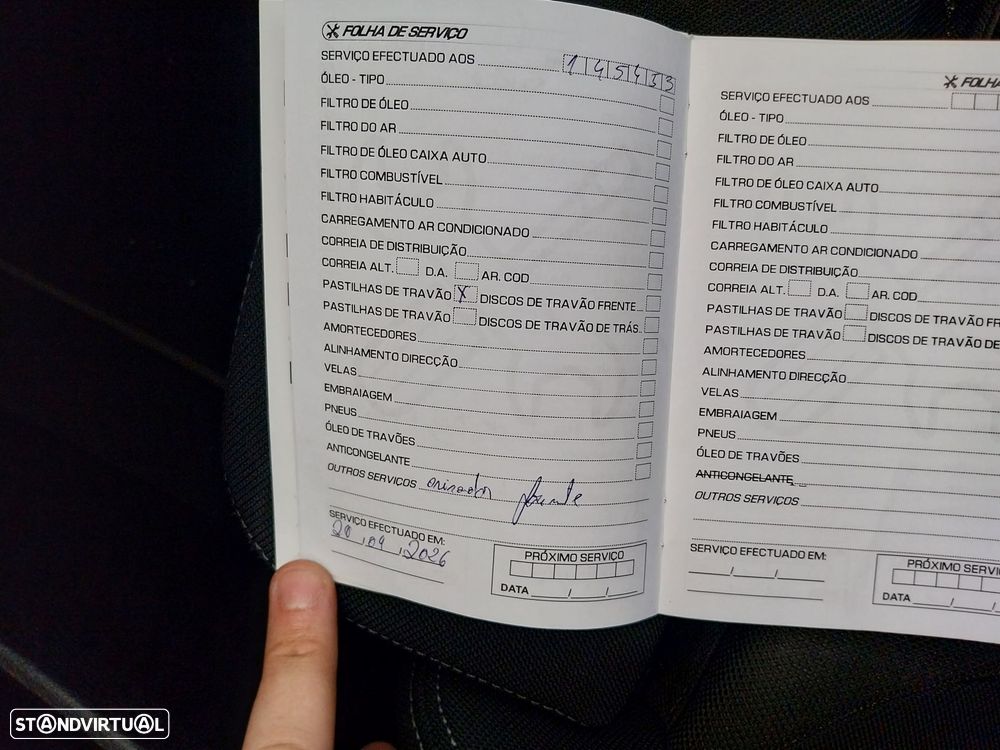 FOLHA DE SERVIÇO
SERVIÇO EFECTUADO AOS 145433
ÓLEO - TIPO
FILTRO DE ÓLEO
FILTRO DO AR
FILTRO DE ÓLEO CAIXA AUTO
FILTRO COMBUSTÍVEL
FILTRO HABITÁCULO
CARREGAMENTO AR CONDICIONADO
CORREIA DE DISTRIBUIÇÃO
CORREIA ALT. D.A. AR. COD
PASTILHAS DE TRAVÃO X DISCOS DE TRAVÃO FRENTE
PASTILHAS DE TRAVÃO DISCOS DE TRAVÃO DE TRÁS
AMORTECEDORES
ALINHAMENTO DIRECÇÃO
VELAS
EMBRAIAGEM
PNEUS
ÓLEO DE TRAVÕES
ANTICONGELANTE
OUTROS SERVIÇOS
SERVIÇO EFECTUADO EM:
20,09,2026
PRÓXIMO SERVIÇO
DATA / /
FOLHA
SERVIÇO EFECTUADO AOS
ÓLEO - TIPO
FILTRO DE ÓLEO
FILTRO DO AR
FILTRO DE ÓLEO CAIXA AUTO
FILTRO COMBUSTÍVEL
FILTRO HABITÁCULO
CARREGAMENTO AR CONDICIONADO
CORREIA DE DISTRIBUIÇÃO
CORREIA ALT. D.A. AR. COD
PASTILHAS DE TRAVÃO DISCOS DE TRAVÃO FR
PASTILHAS DE TRAVÃO DISCOS DE TRAVÃO DE
AMORTECEDORES
ALINHAMENTO DIRECÇÃO
VELAS
EMBRAIAGEM
PNEUS
ÓLEO DE TRAVÕES
ANTICONGELANTE
OUTROS SERVIÇOS
SERVIÇO EFECTUADO EM:
/ /
PRÓXIMO SERVI
DATA / /
STANDVIRTUAL